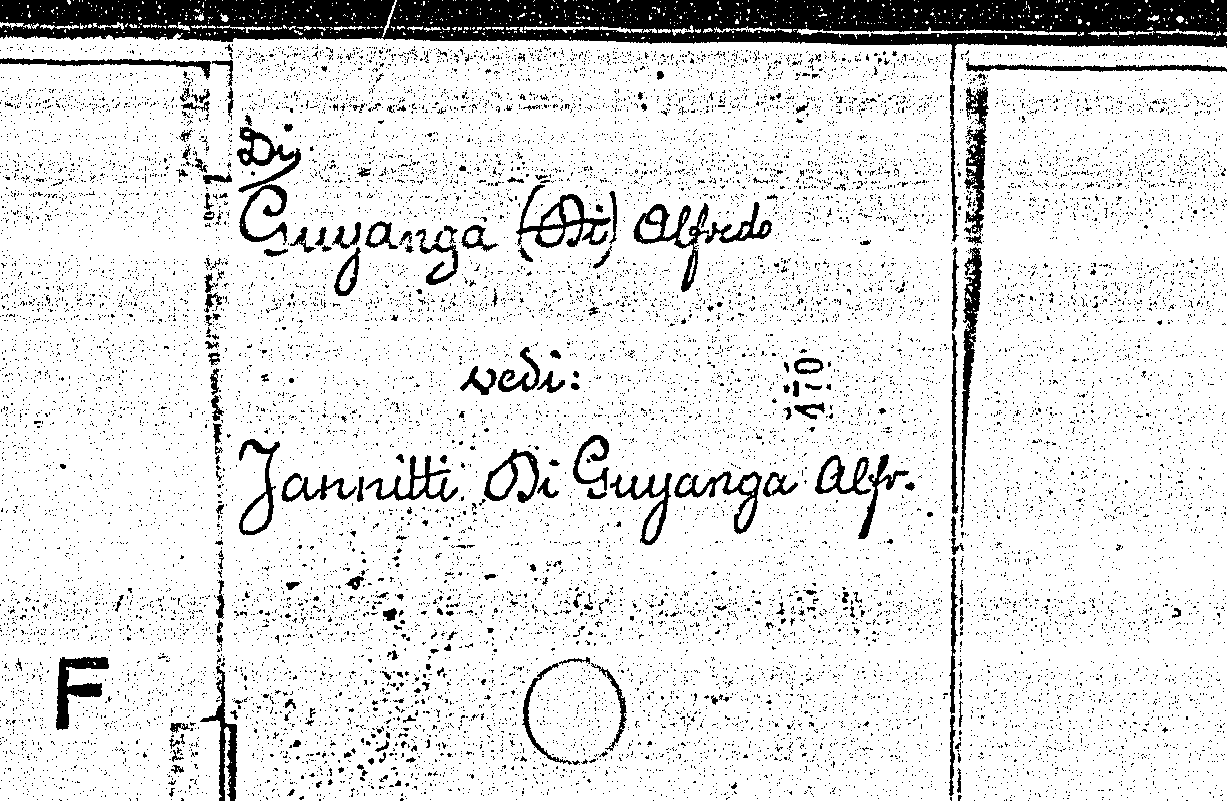 Di
Guyanga (Di) Alfredo
vedi:
Jannitti Di Guyanga Alfr.
F